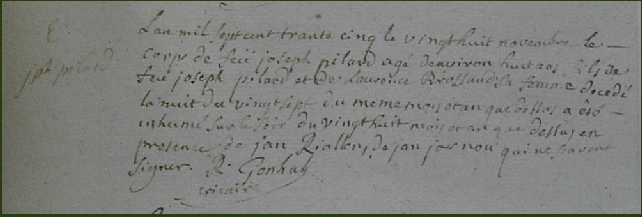 E:
jph pilard
Lan mil sept cent trante cinq le vingt huit novembre le
corps de feü joseph pilard agé denviron huit ans, fils de
feü joseph pilard et de Laurence sa femme decedé
la nuit du vingt sept du meme mois et an que dessus a été
inhumé sur le soir du vingt huit mois et an que dessus en
presence de jan de jan qui ne scavent
signer. R. Gonhay
vicaire